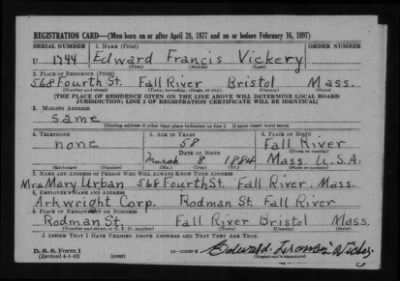 REGISTRATION CARD—(Men born on or after April 28, 1877 and on or before February 16, 1897)
SERIAL NUMBER 1. NAME (Print) ORDER NUMBER
U 1744 Edward Francis Vickery
(First) (Middle) (Last)
2. PLACE OF RESIDENCE (Print)
568 Fourth St. Fall River Bristol Mass.
(Number and street) (Town, township, village, or city) (County) (State)
[THE PLACE OF RESIDENCE GIVEN ON THE LINE ABOVE WILL DETERMINE LOCAL BOARD
JURISDICTION; LINE 2 OF REGISTRATION CERTIFICATE WILL BE IDENTICAL]
3. MAILING ADDRESS
Same
[Mailing address if other than place indicated on line 2. If same insert word same]
4. TELEPHONE 5. AGE IN YEARS 6. PLACE OF BIRTH
none 58 Fall River
DATE OF BIRTH (Town or county)
March 8 1884 Mass. U.S.A.
(Exchange) (Number) (Mo.) (Day) (Yr.) (State or country)
7. NAME AND ADDRESS OF PERSON WHO WILL ALWAYS KNOW YOUR ADDRESS
Mrs Mary Urban 568 Fourth St. Fall River, Mass.
8. EMPLOYER'S NAME AND ADDRESS
Arkwright Corp. Rodman St. Fall River
9. PLACE OF EMPLOYMENT OR BUSINESS
Rodman St. Fall River Bristol Mass.
(Number and street or R. F. D. number) (Town) (County) (State)
I AFFIRM THAT I HAVE VERIFIED ABOVE ANSWERS AND THAT THEY ARE TRUE.
D. S. S. Form 1 Edward Francis Vickery
(Revised 4-1-42) (over) (Registrant's signature)